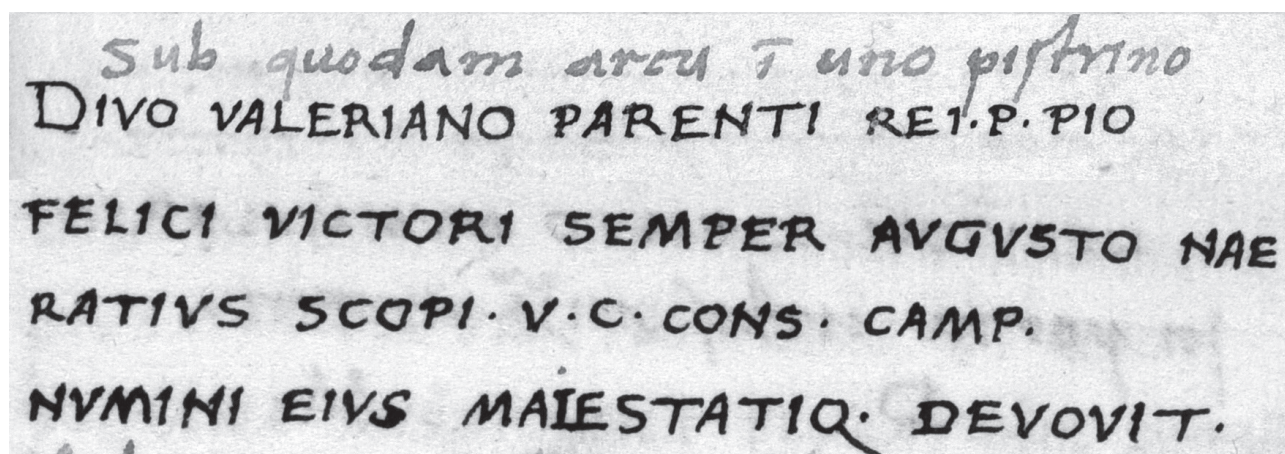 Sub quodam arcu ī uno pistrino
DIVO VALERIANO PARENTI REI·P·PIO
FELICI VICTORI SEMPER AVGVSTO NAE
RATIVS SCOPI· V·C· CONS· CAMP.
NVMINI EIVS MAIESTATIQ· DEVOVIT·